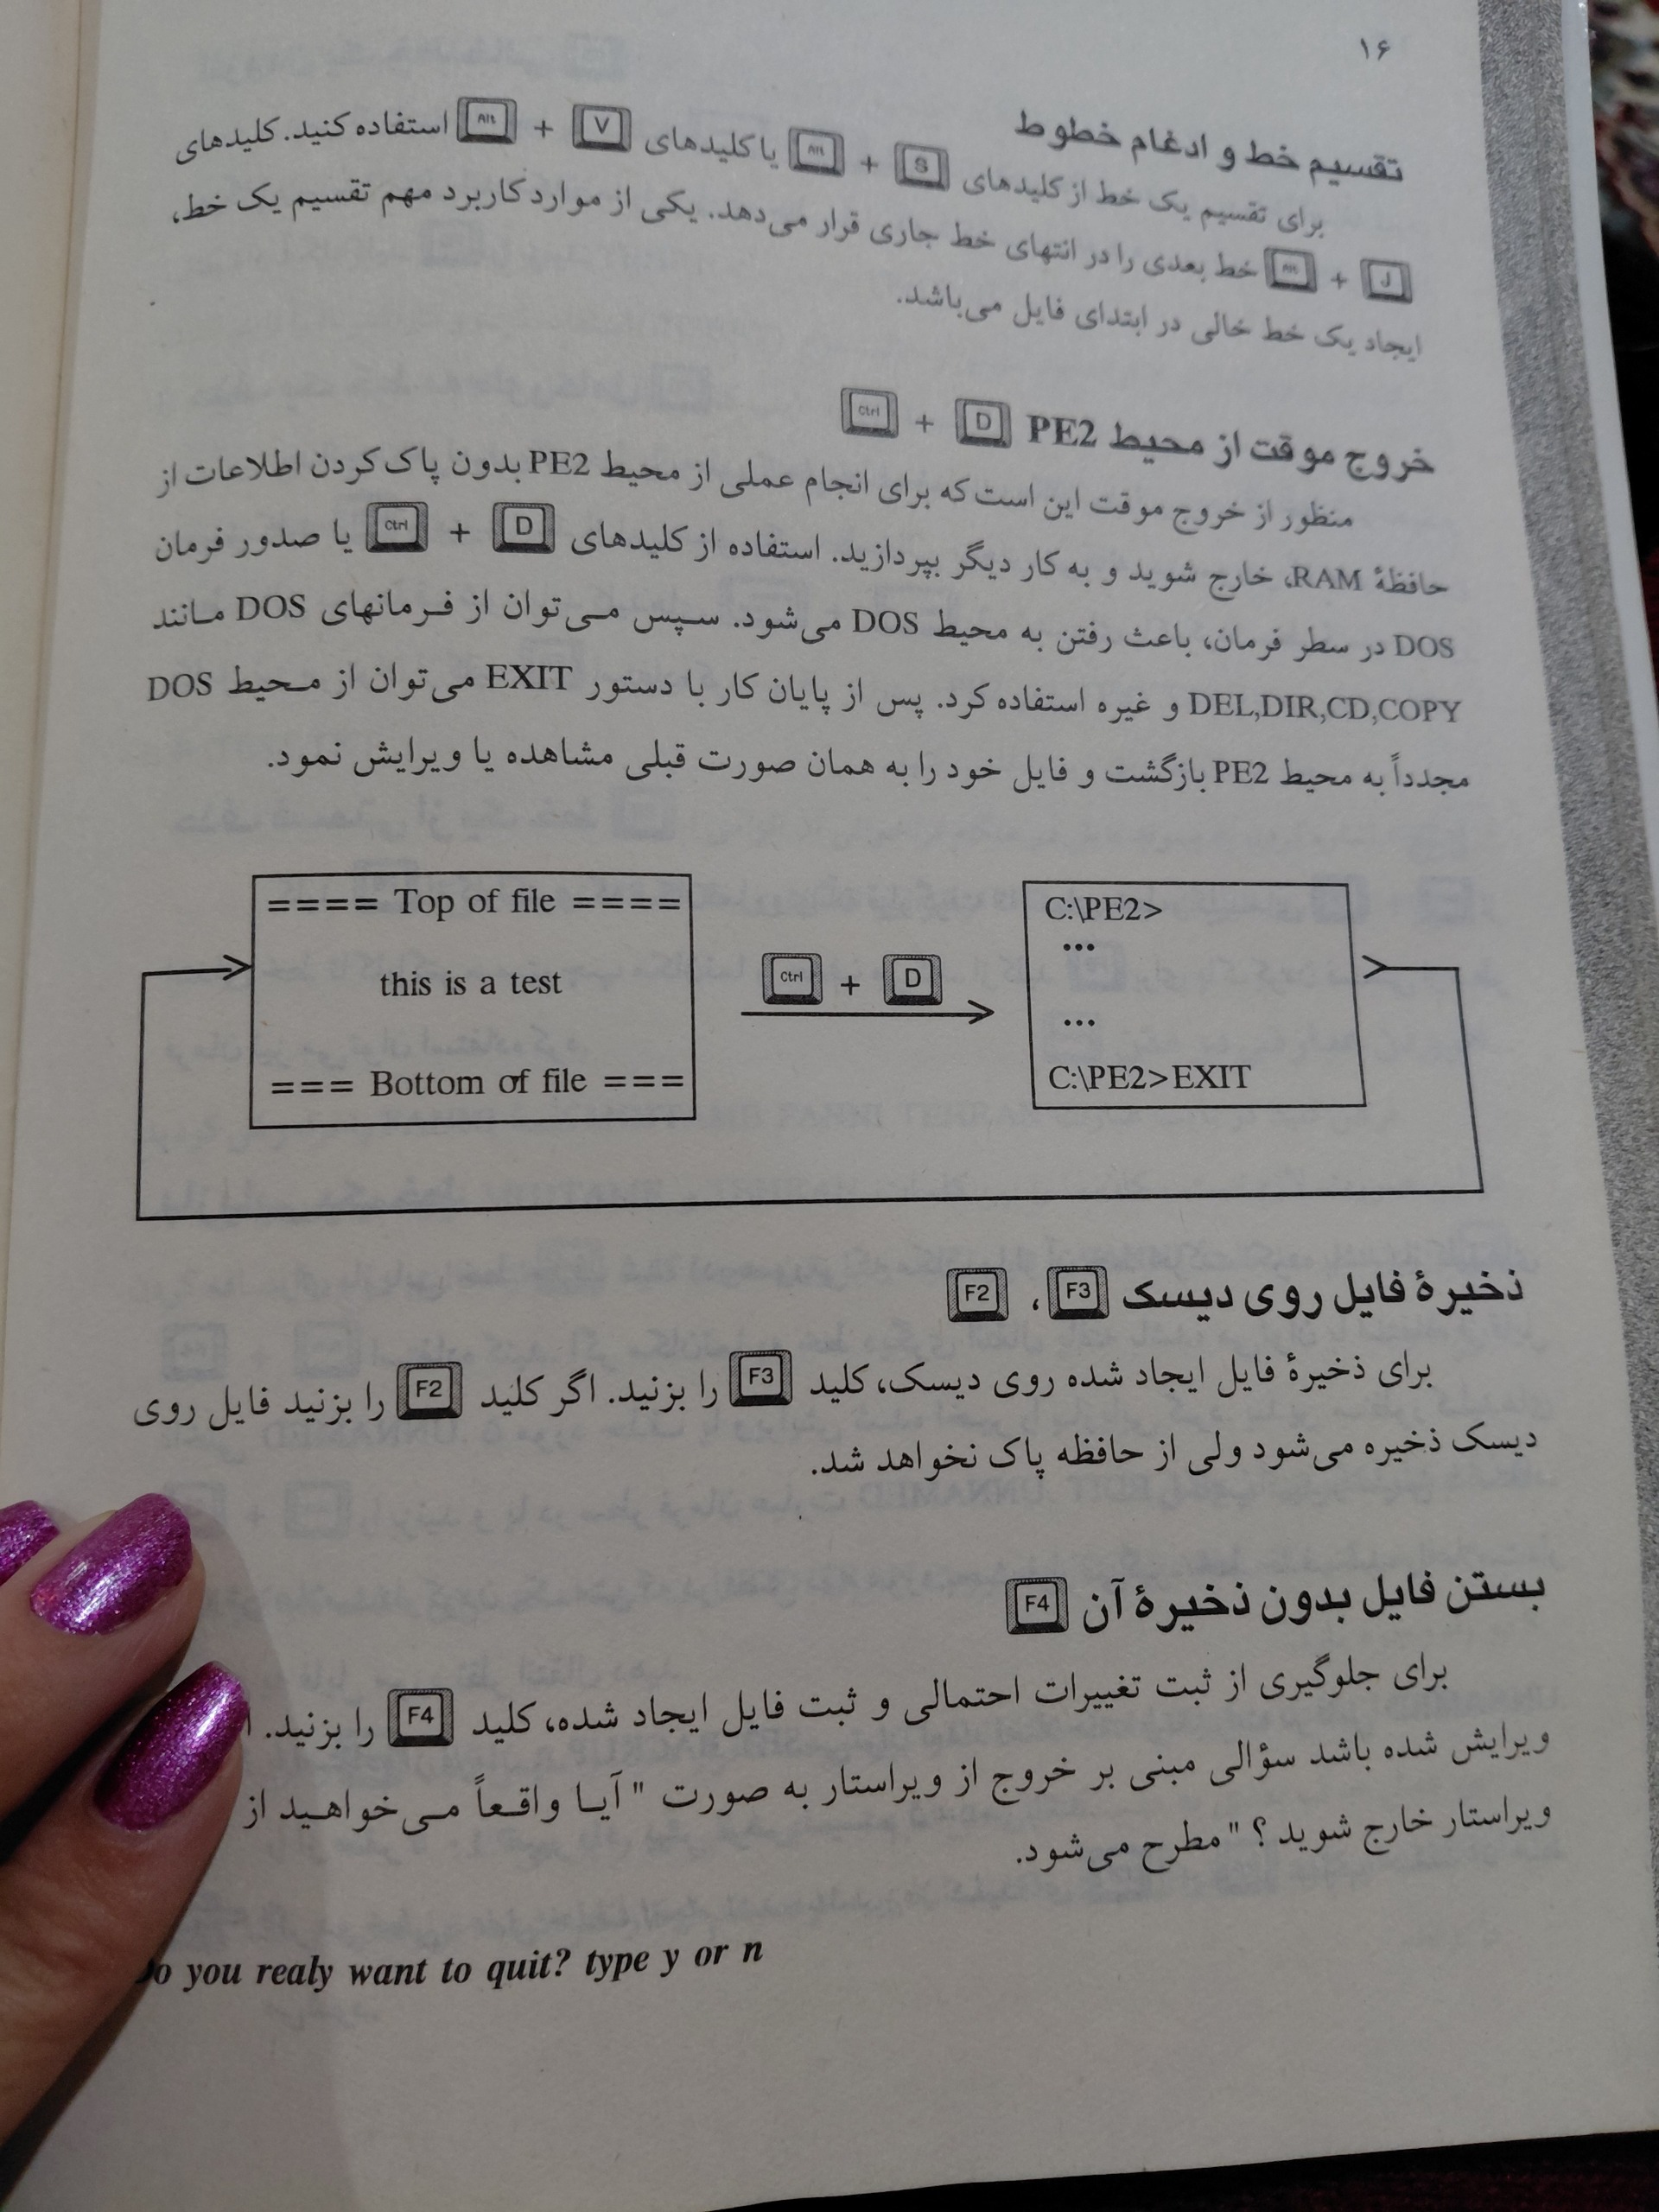 ۱۶
تقسیم خط و ادغام خطوط
برای تقسیم یک خط از کلیدهای S + Alt یا کلیدهای V + Alt استفاده کنید. کلیدهای
J + Alt خط بعدی را در انتهای خط جاری قرار می‌دهد. یکی از موارد کاربرد مهم تقسیم یک خط،
ایجاد یک خط خالی در ابتدای فایل می‌باشد.
خروج موقت از محیط PE2 D + Ctrl
منظور از خروج موقت این است که برای انجام عملی از محیط PE2 بدون پاک کردن اطلاعات از
حافظهٔ RAM، خارج شوید و به کار دیگر بپردازید. استفاده از کلیدهای D + Ctrl یا صدور فرمان
DOS در سطر فرمان، باعث رفتن به محیط DOS می‌شود. سپس می‌توان از فرمانهای DOS مانند
DEL,DIR,CD,COPY و غیره استفاده کرد. پس از پایان کار با دستور EXIT می‌توان از محیط DOS
مجدداً به محیط PE2 بازگشت و فایل خود را به همان صورت قبلی مشاهده یا ویرایش نمود.
==== Top of file ====
this is a test
=== Bottom of file ===
Ctrl + D
C:\PE2>
...
...
C:\PE2>EXIT
ذخیرهٔ فایل روی دیسک F3 ، F2
برای ذخیرهٔ فایل ایجاد شده روی دیسک، کلید F3 را بزنید. اگر کلید F2 را بزنید فایل روی
دیسک ذخیره می‌شود ولی از حافظه پاک نخواهد شد.
بستن فایل بدون ذخیرهٔ آن F4
برای جلوگیری از ثبت تغییرات احتمالی و ثبت فایل ایجاد شده، کلید F4 را بزنید.
ویرایش شده باشد سؤالی مبنی بر خروج از ویراستار به صورت " آیا واقعاً می‌خواهید از
ویراستار خارج شوید ؟ " مطرح می‌شود.
you realy want to quit? type y or n